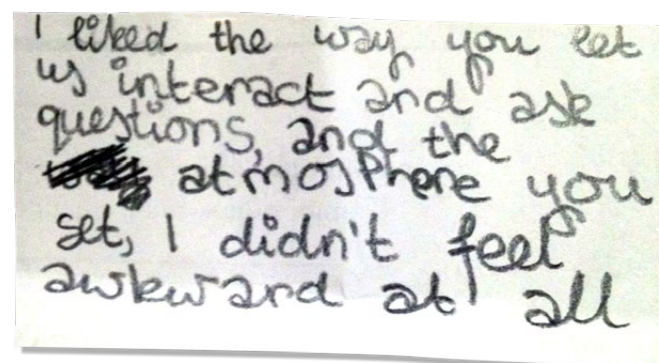 I liked the way you let
us interact and ask
questions, and the
atmosphere you
set, I didn't feel
awkward at all